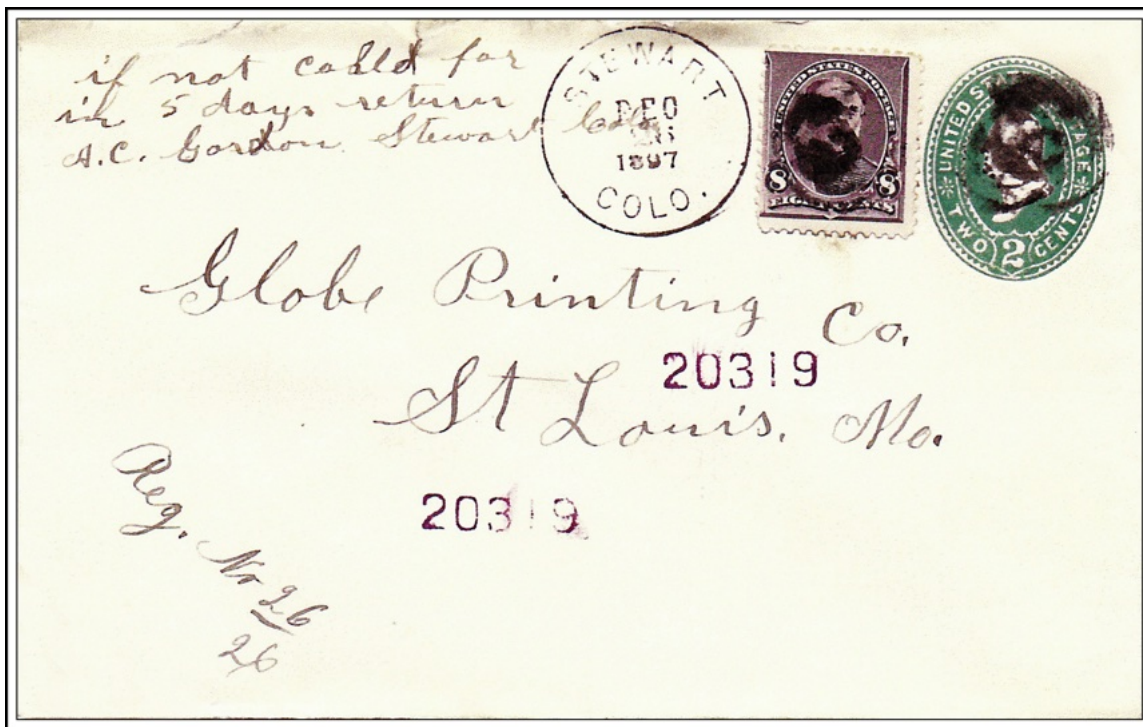 if not called for
in 5 days return
A.C. Gordon Stewart Colo
STEWART
DEC
26
1897
COLO.
UNITED STATES POSTAGE
8 8
EIGHT CENTS
UNITED STATES POSTAGE
TWO 2 CENTS
Globe Printing Co.
20319
St Louis, Mo.
20319
Reg. No 26
26